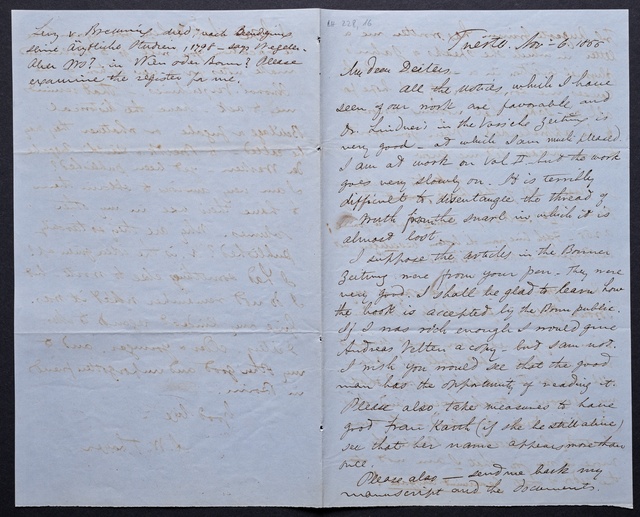 Lenz v. Breuning died nach
seine ärztliche Studien, 1798 - says Wegeler.
Aber Wo? in Wien oder Bonn? Please
examine the register for me,
Trieste, Nov. 6. 1866
My dear Deiters,
All the notices, which I have
seen of our work are favorable and
Dr. Lindner's in the Vossische Zeitung is
very good - at which I am much pleased
I am at work on Vol II. but the work
goes very slowly on. It is terribly
difficult to disentangle the thread of
truth from the snarl in which it is
almost lost.
I suppose the articles in the Bonner
Zeitung were from your pen - they were
very good. I shall be glad to learn how
the book is accepted by the Bonn public.
If I was rich enough I would give
Andreas Velten a copy - but I am not.
I wish you would see that the good
man has the opportunity of reading it.
Please also, take measures to have
good Frau Karth (if she be still alive)
see that her name appears more than
once.
Please also - send me back my
manuscript and the documents.